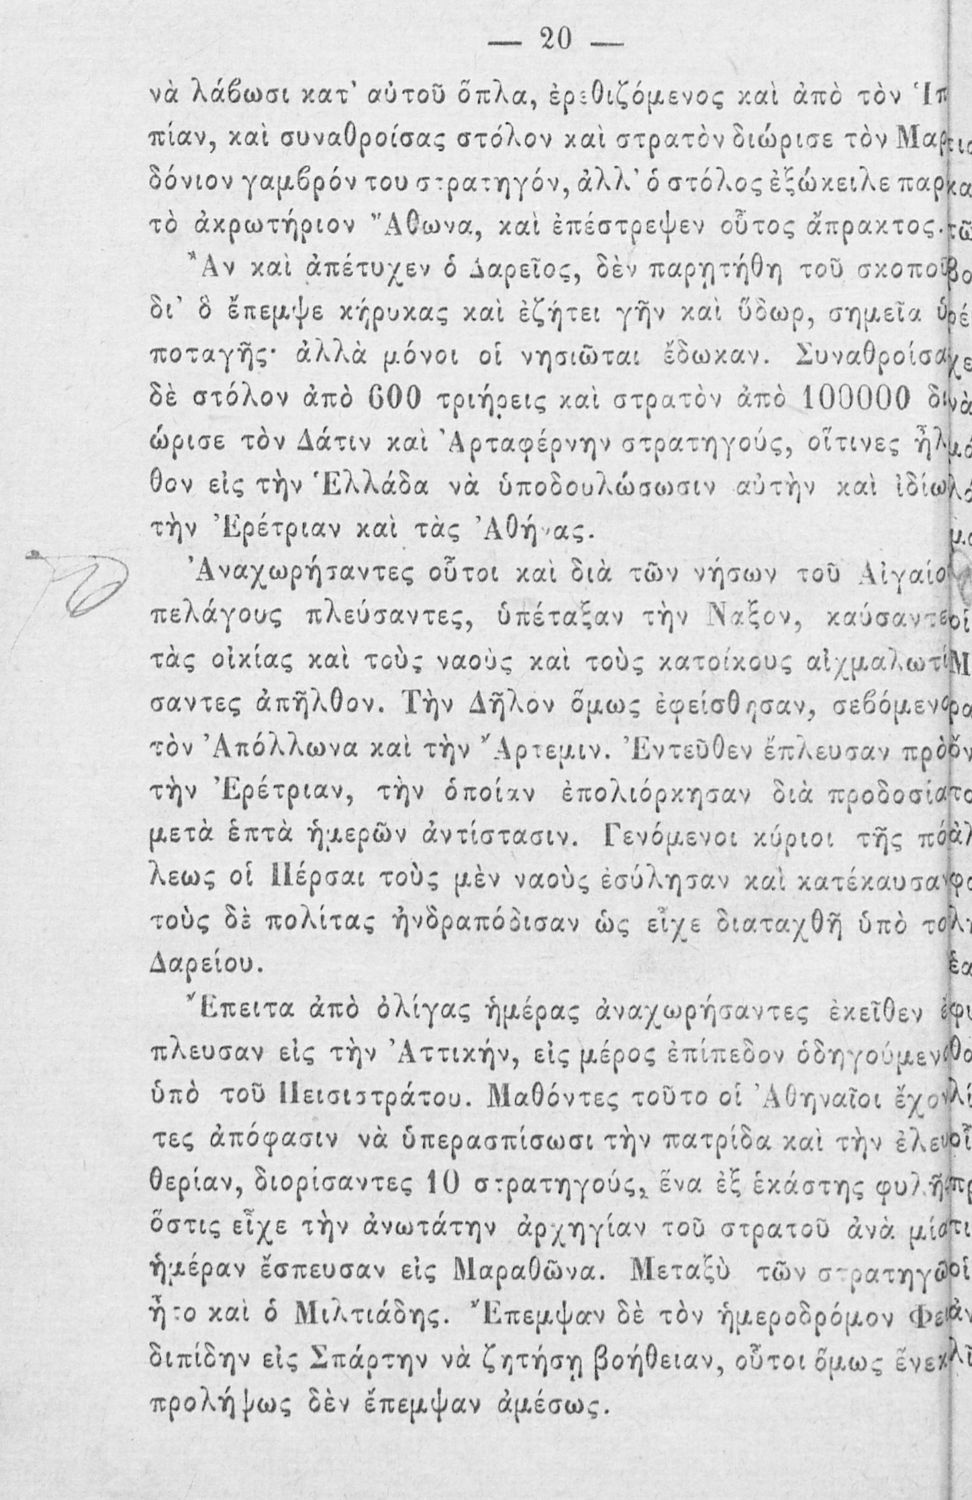 — 20 —
νὰ λάβωσι κατ' αὐτοῦ ὅπλα, ἐρεθιζόμενος καὶ ἀπὸ τὸν Ἱπ
πίαν, καὶ συναθροίσας στόλον καὶ στρατὸν διώρισε τὸν Μαρ
δόνιον γαμβρόν του στρατηγόν, ἀλλ' ὁ στόλος ἐξώκειλε παρ
τὸ ἀκρωτήριον Ἄθωνα, καὶ ἐπέστρεψεν οὗτος ἄπρακτος.
Ἂν καὶ ἀπέτυχεν ὁ Δαρεῖος, δὲν παρῃτήθη τοῦ σκοποῦ
δι' ὃ ἔπεμψε κήρυκας καὶ ἐζήτει γῆν καὶ ὕδωρ, σημεῖα ὑ
ποταγῆς· ἀλλὰ μόνοι οἱ νησιῶται ἔδωκαν. Συναθροίσα
δὲ στόλον ἀπὸ 600 τριήρεις καὶ στρατὸν ἀπὸ 100000 δι
ώρισε τὸν Δάτιν καὶ Ἀρταφέρνην στρατηγούς, οἵτινες ἦλ
θον εἰς τὴν Ἑλλάδα νὰ ὑποδουλώσωσιν αὐτὴν καὶ ἰδίω
τὴν Ἐρέτριαν καὶ τὰς Ἀθήνας.
Ἀναχωρήσαντες οὗτοι καὶ διὰ τῶν νήσων τοῦ Αἰγαίο
πελάγους πλεύσαντες, ὑπέταξαν τὴν Ναξον, καύσαντε
τὰς οἰκίας καὶ τοὺς ναοὺς καὶ τοὺς κατοίκους αἰχμαλωτί
σαντες ἀπῆλθον. Τὴν Δῆλον ὅμως ἐφείσθησαν, σεβόμενο
τὸν Ἀπόλλωνα καὶ τὴν Ἄρτεμιν. Ἐντεῦθεν ἔπλευσαν πρὸ
τὴν Ἐρέτριαν, τὴν ὁποίαν ἐπολιόρκησαν διὰ προδοσία
μετὰ ἑπτὰ ἡμερῶν ἀντίστασιν. Γενόμενοι κύριοι τῆς πό
λεως οἱ Πέρσαι τοὺς μὲν ναοὺς ἐσύλησαν καὶ κατέκαυσαν
τοὺς δὲ πολίτας ἠνδραπόδισαν ὡς εἶχε διαταχθῆ ὑπὸ το
Δαρείου.
Ἔπειτα ἀπὸ ὀλίγας ἡμέρας ἀναχωρήσαντες ἐκεῖθεν ἐ
πλευσαν εἰς τὴν Ἀττικήν, εἰς μέρος ἐπίπεδον ὁδηγούμενο
ὑπὸ τοῦ Πεισιστράτου. Μαθόντες τοῦτο οἱ Ἀθηναῖοι ἔχον
τες ἀπόφασιν νὰ ὑπερασπίσωσι τὴν πατρίδα καὶ τὴν ἐλευ
θερίαν, διορίσαντες 10 στρατηγούς, ἕνα ἐξ ἑκάστης φυλῆ
ὅστις εἶχε τὴν ἀνωτάτην ἀρχηγίαν τοῦ στρατοῦ ἀνὰ μία
ἡμέραν ἔσπευσαν εἰς Μαραθῶνα. Μεταξὺ τῶν στρατηγῶ
ἦτο καὶ ὁ Μιλτιάδης. Ἔπεμψαν δὲ τὸν ἡμεροδρόμον Φε
διπίδην εἰς Σπάρτην νὰ ζητήσῃ βοήθειαν, οὗτοι ὅμως ἕνεκ
προλήψως δὲν ἔπεμψαν ἀμέσως.